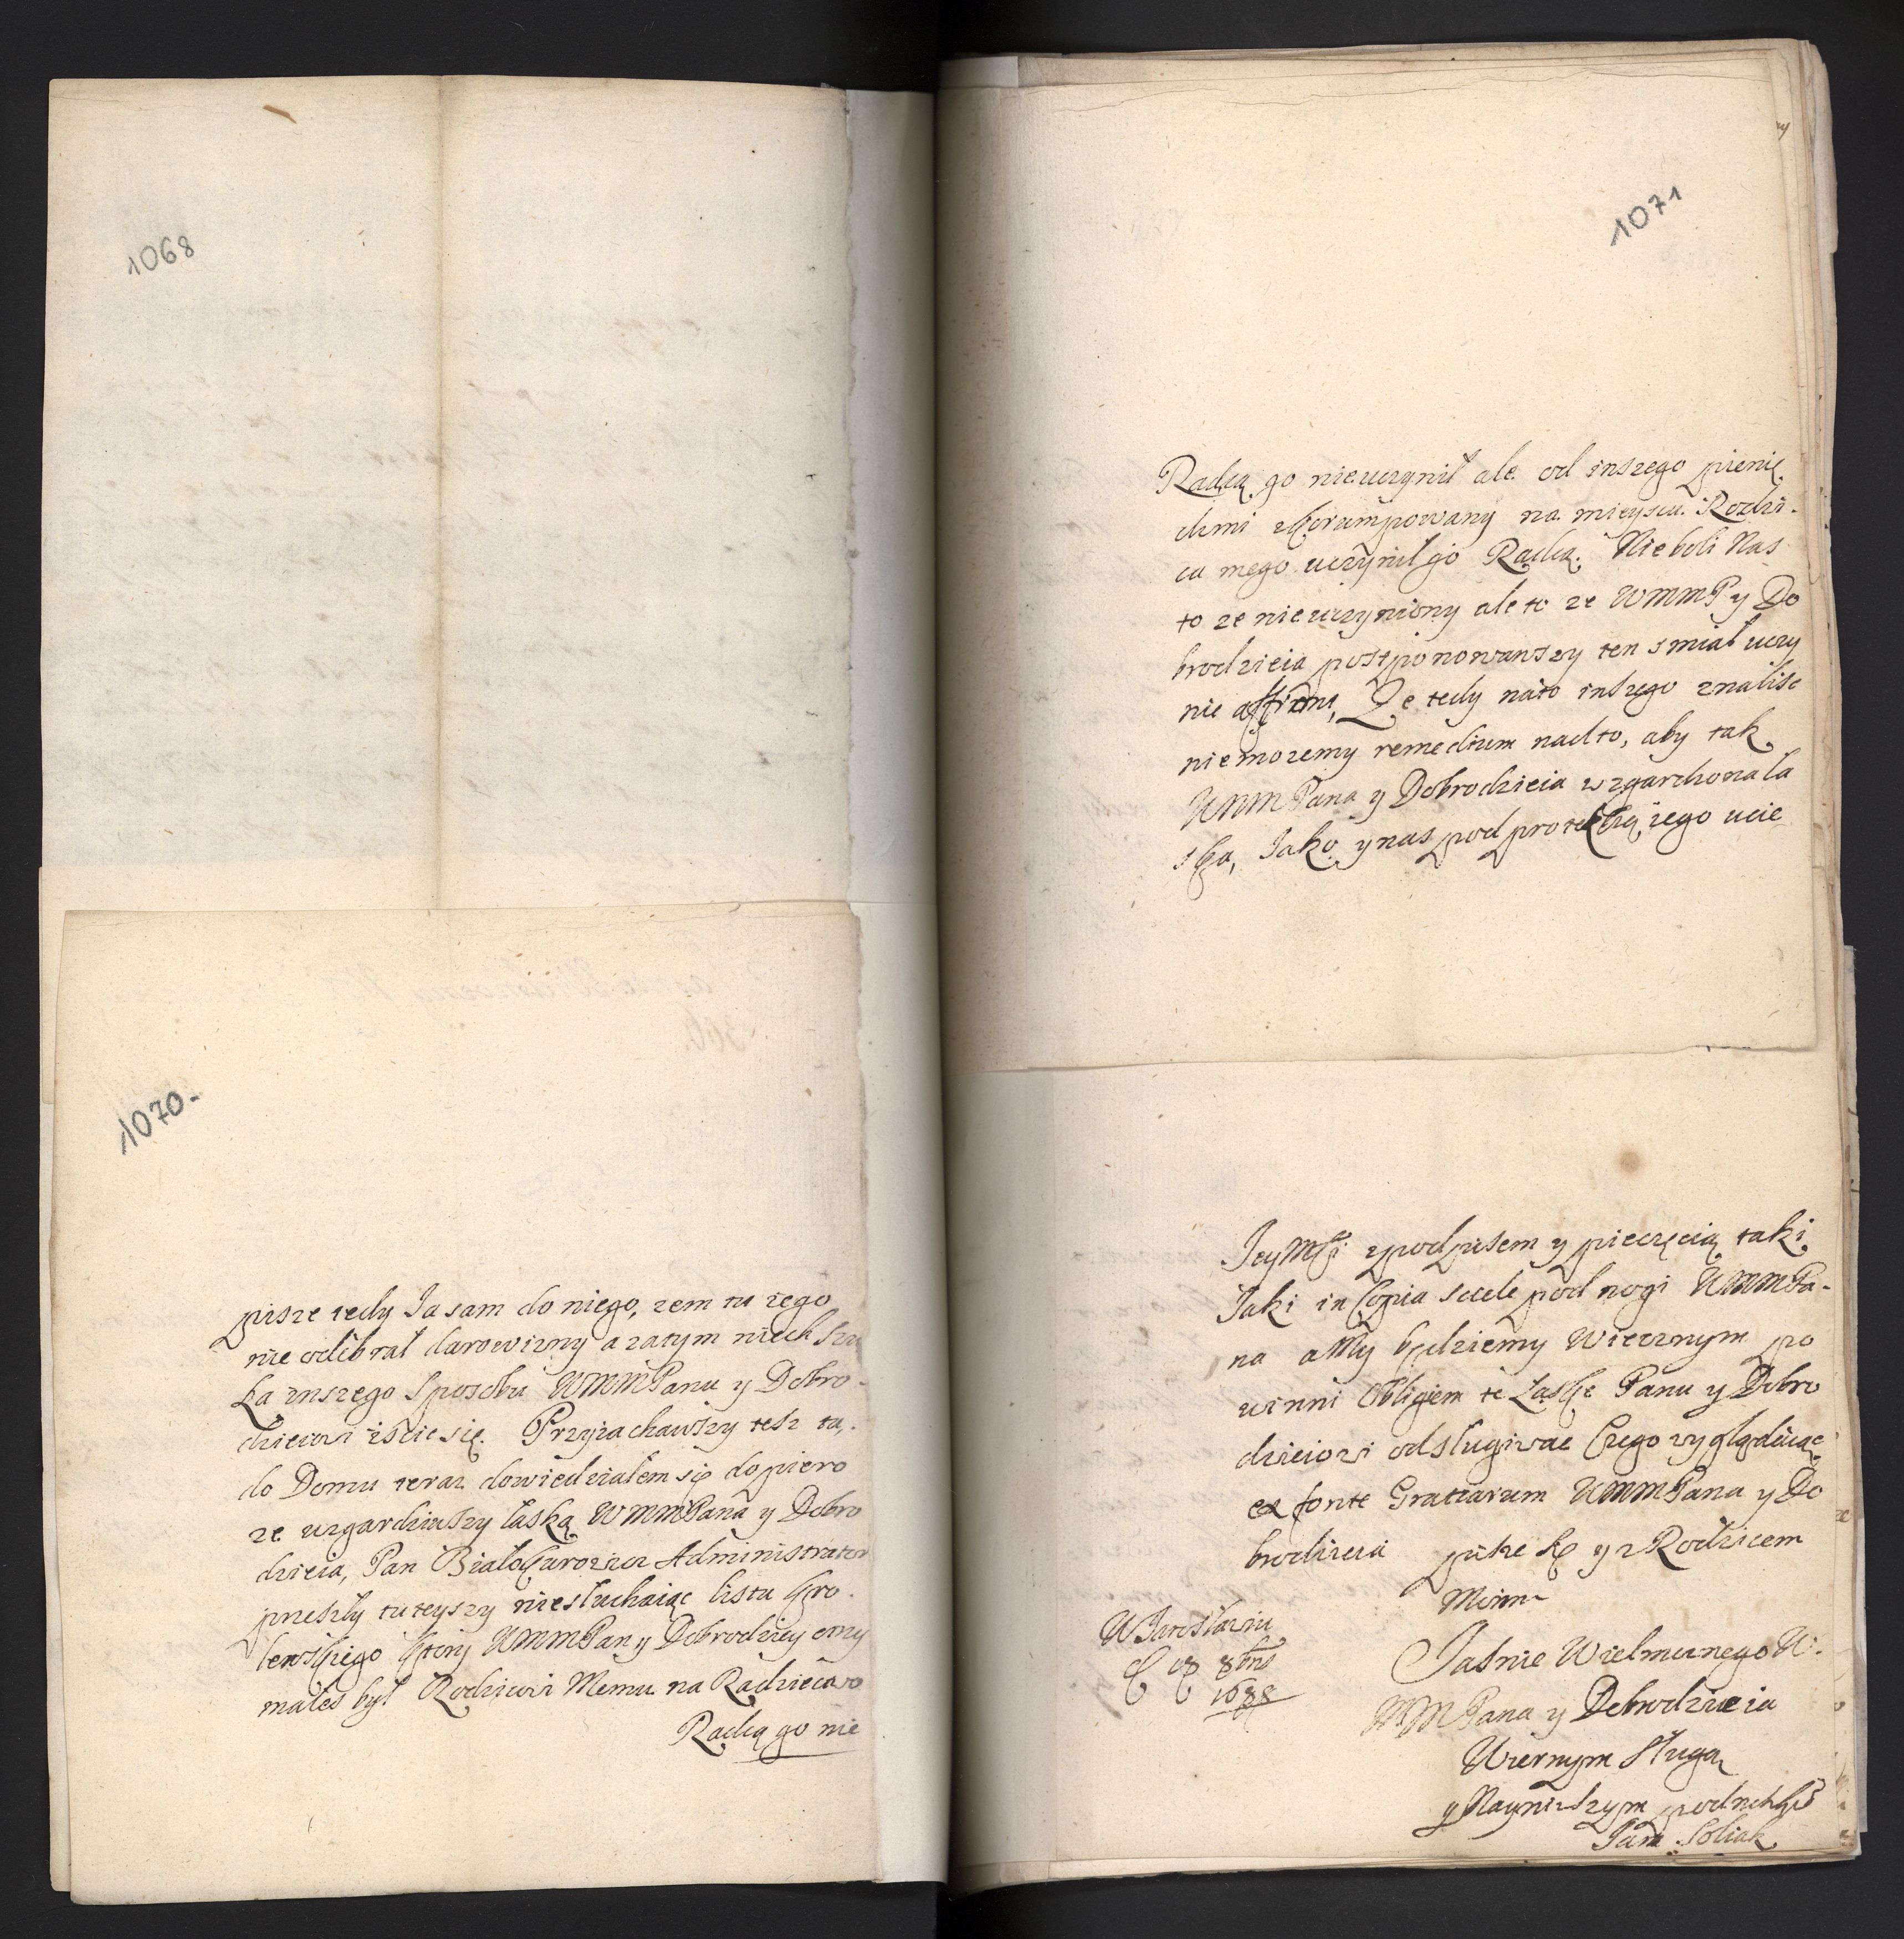 1068
1070.
pisze tedy Ja sam do niego, zem tu iego
nie odebrał darowizny a zatym niech szu
ka inszego sposobu WMMPanu y Dobro-
dzieiowi iscie się. Przyiachawszy tesz tu
do Domu teraz dowiedziałem się dopiero
ze wzgardziwszy łaską WMMPana y Dobro
dzieia, Pan Administrator
przeszły tuteyszy niesłuchaiąc listu
ktory WMMPan y Dobrodziey
małes był Rodzicowi Memu na Radziectwo
Radcą go nie
1071
Radcą go nieuczynił ale od inszego pienię
dzmi skorumpowany na mieyscu Rodzi-
ca mego uczynił go Radcą. Nieboli Nas
to ze nieuczyniony ale to ze WMMP y Do
brodzieia postponowawszy ten smiał uczy
nic affront, Ze tedy nato inszego znalisc
niemozemy remedium nadto, aby tak
WMMPana y Dobrodzieia wzgardzona ła
ska, Jako y nas pod protekcią iego ucie
JeyMsci z podpisem y pieczęcią taki
Jaki in Copia sciele pod nogi WMMPa-
na a My będziemy Wiecznym po
winni Obligiem te Laskę Panu y Dobro
dzieiowi odsługiwac Czego wyglądaiąc
ex fonte Gratiarum WMMPana y Do
brodzieia pisze się y z Rodzicem
Moim
Jasnie Wielmoznego W.
MMPana y Dobrodzieia
Wiernym sługą
y Nayniszszym podnoszkiem
W Jarosławiu
8bris
1688